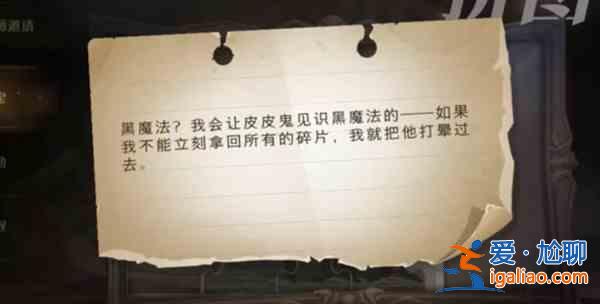 拼图
师邀请
黑魔法？我会让皮皮鬼见识黑魔法的——如果
我不能立刻拿回所有的碎片，我就把他打晕过
去。
爱·尬聊
igaliao.com